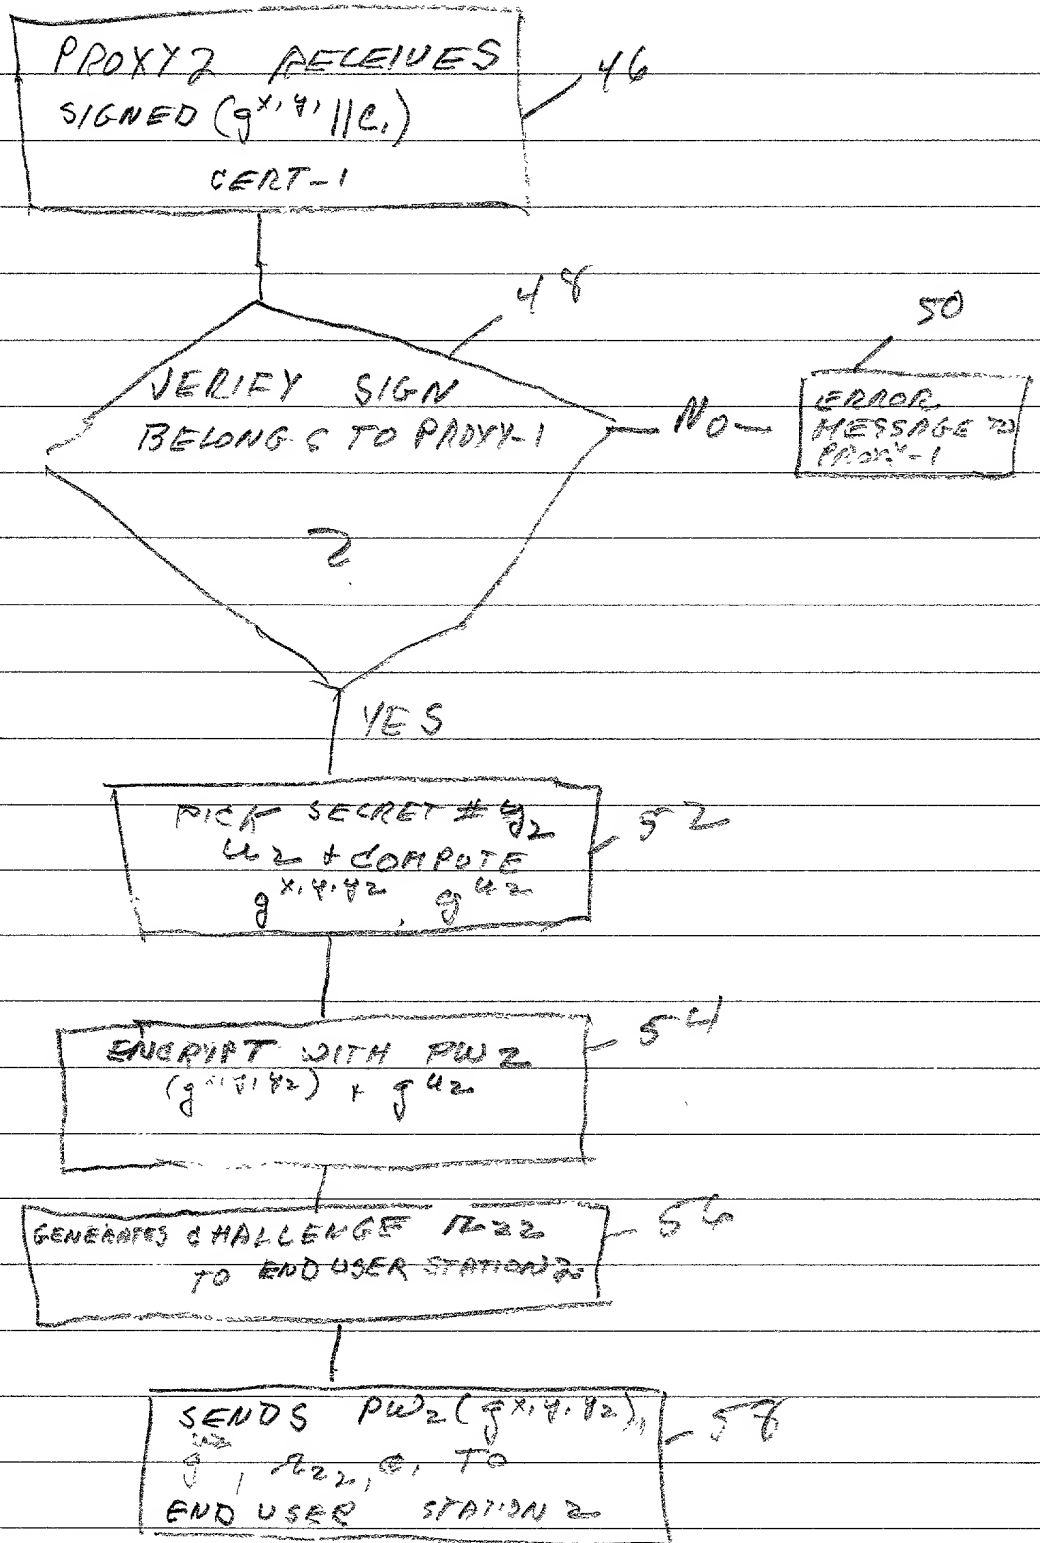 PROXY 2 RECEIVES
SIGNED (g^x1y1 || C1)
CERT-1
46
48
50
VERIFY SIGN
BELONGS TO PROXY-1
?
NO
ERROR
MESSAGE TO
PROXY-1
YES
PICK SECRET # y2
u2 + COMPUTE
g^x1y1y2, g^u2
52
ENCRYPT WITH PW2
(g^x1y1y2) + g^u2
54
GENERATES CHALLENGE r22
TO END USER STATION 2
56
SENDS PW2 (g^x1y1y2),
g^u2, r22, C1 TO
END USER STATION 2
58